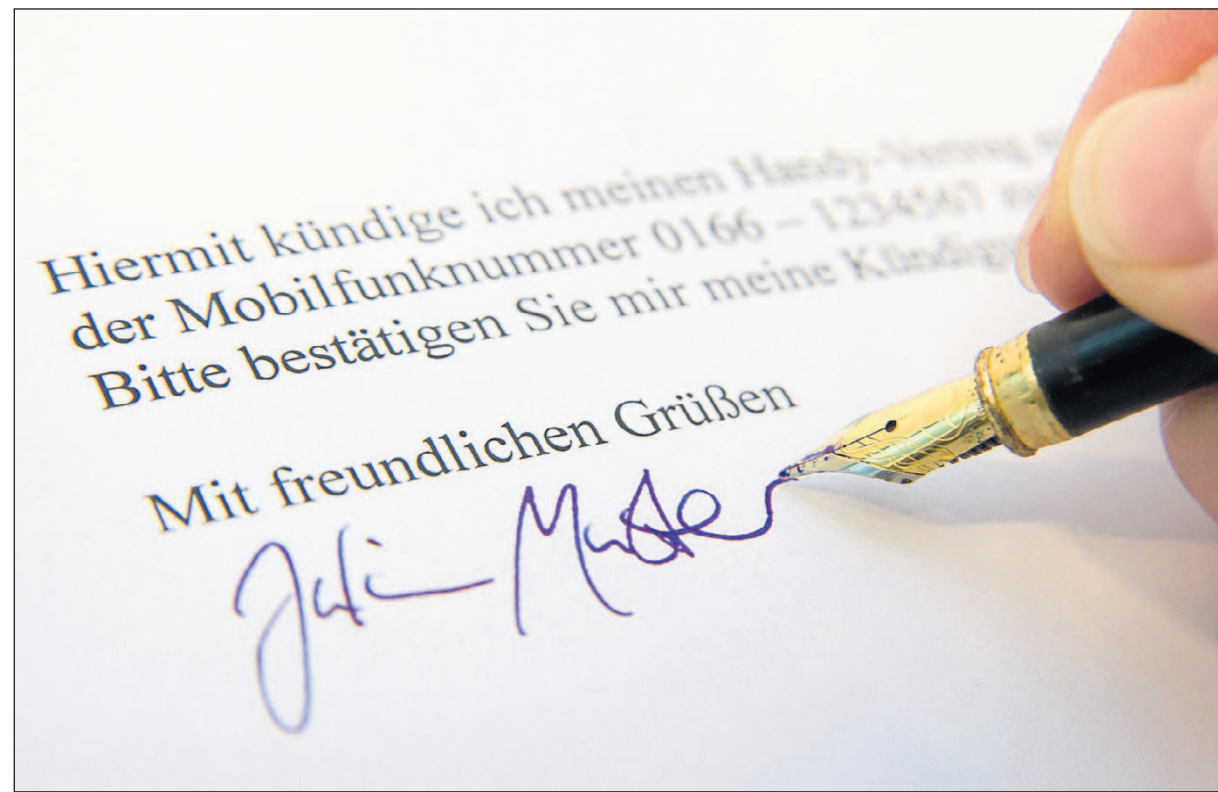 Hiermit kündige ich meinen Handy-Vertrag
der Mobilfunknummer 0166 – 1234567
Bitte bestätigen Sie mir meine
Mit freundlichen Grüßen
Muster